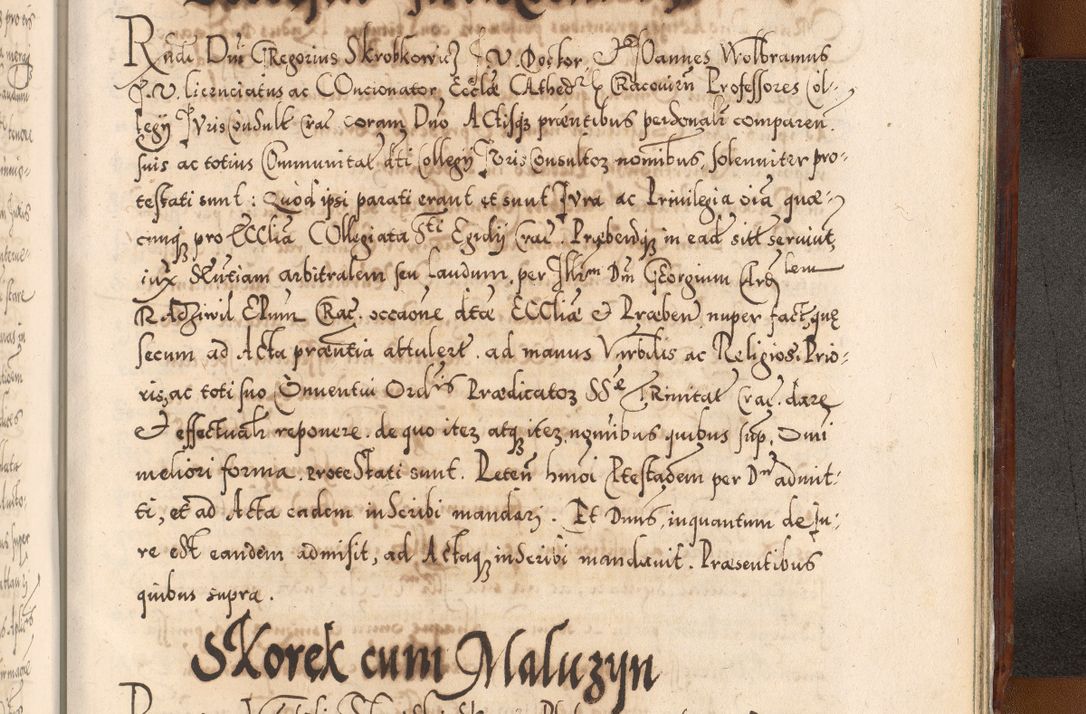 Rndi Dni GRegorius Skrobkowicz J. V. Doctor, et JOannes Wolbramus
J. V. licenciatus ac COncionator Ecclæ CAthedrl Cracovien Professores Col-
legij Jvris Consult Crac coram Dno ACtisq præntibus personalr comparen.
suis ac totius Communitat dti Collegij Juris Consultoz nominibus solenniter pro-
testati sunt: Quod ipsi parati erant et sunt Jura ac Privilegia oia quæ-
cunq pro ECClia COllegiata Sti Egidij Crac. Præbendisq in ead sitt serviunt,
iux SEntiam arbitralem seu laudum per Jllrm Dm GEorgium Cardlem
RAdziwil EPum Crac. occaone dtæ ECCliæ et Præben nuper fact, quę
secum ad Acta præntia attulert. ad manus Vnrbilis ac Religiosi Prio-
ris, ac toti suo Conventui Ordris Prædicatoz SSæ TRinitat Crac. dare
et effectualr reponere. de quo itez atq itez nominibus quibus sup. Omi
meliori forma. proteStati sunt. Peten hmoi Ptestaōem per Dm admit-
ti, et ad Acta eadem inScribi mandarj. Et Dnus, inquantum de Ju-
re eSt eandem admisit, ad ACtaq inscribi mandavit. Præsentibus
quibus supra.
SKorek cum Maluzyn